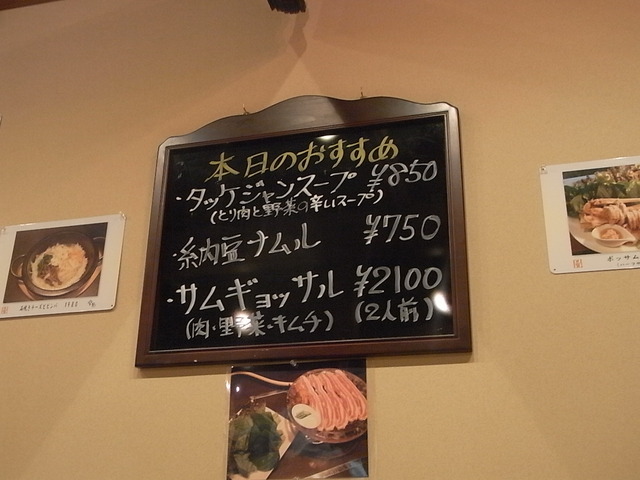 本日のおすすめ
・タッケジャンスープ ¥850
(とり肉と野菜の辛いスープ)
・納豆ナムル ¥750
・サムギョッサル ¥2100
(肉・野菜・キムチ) (2人前)
ポッサム